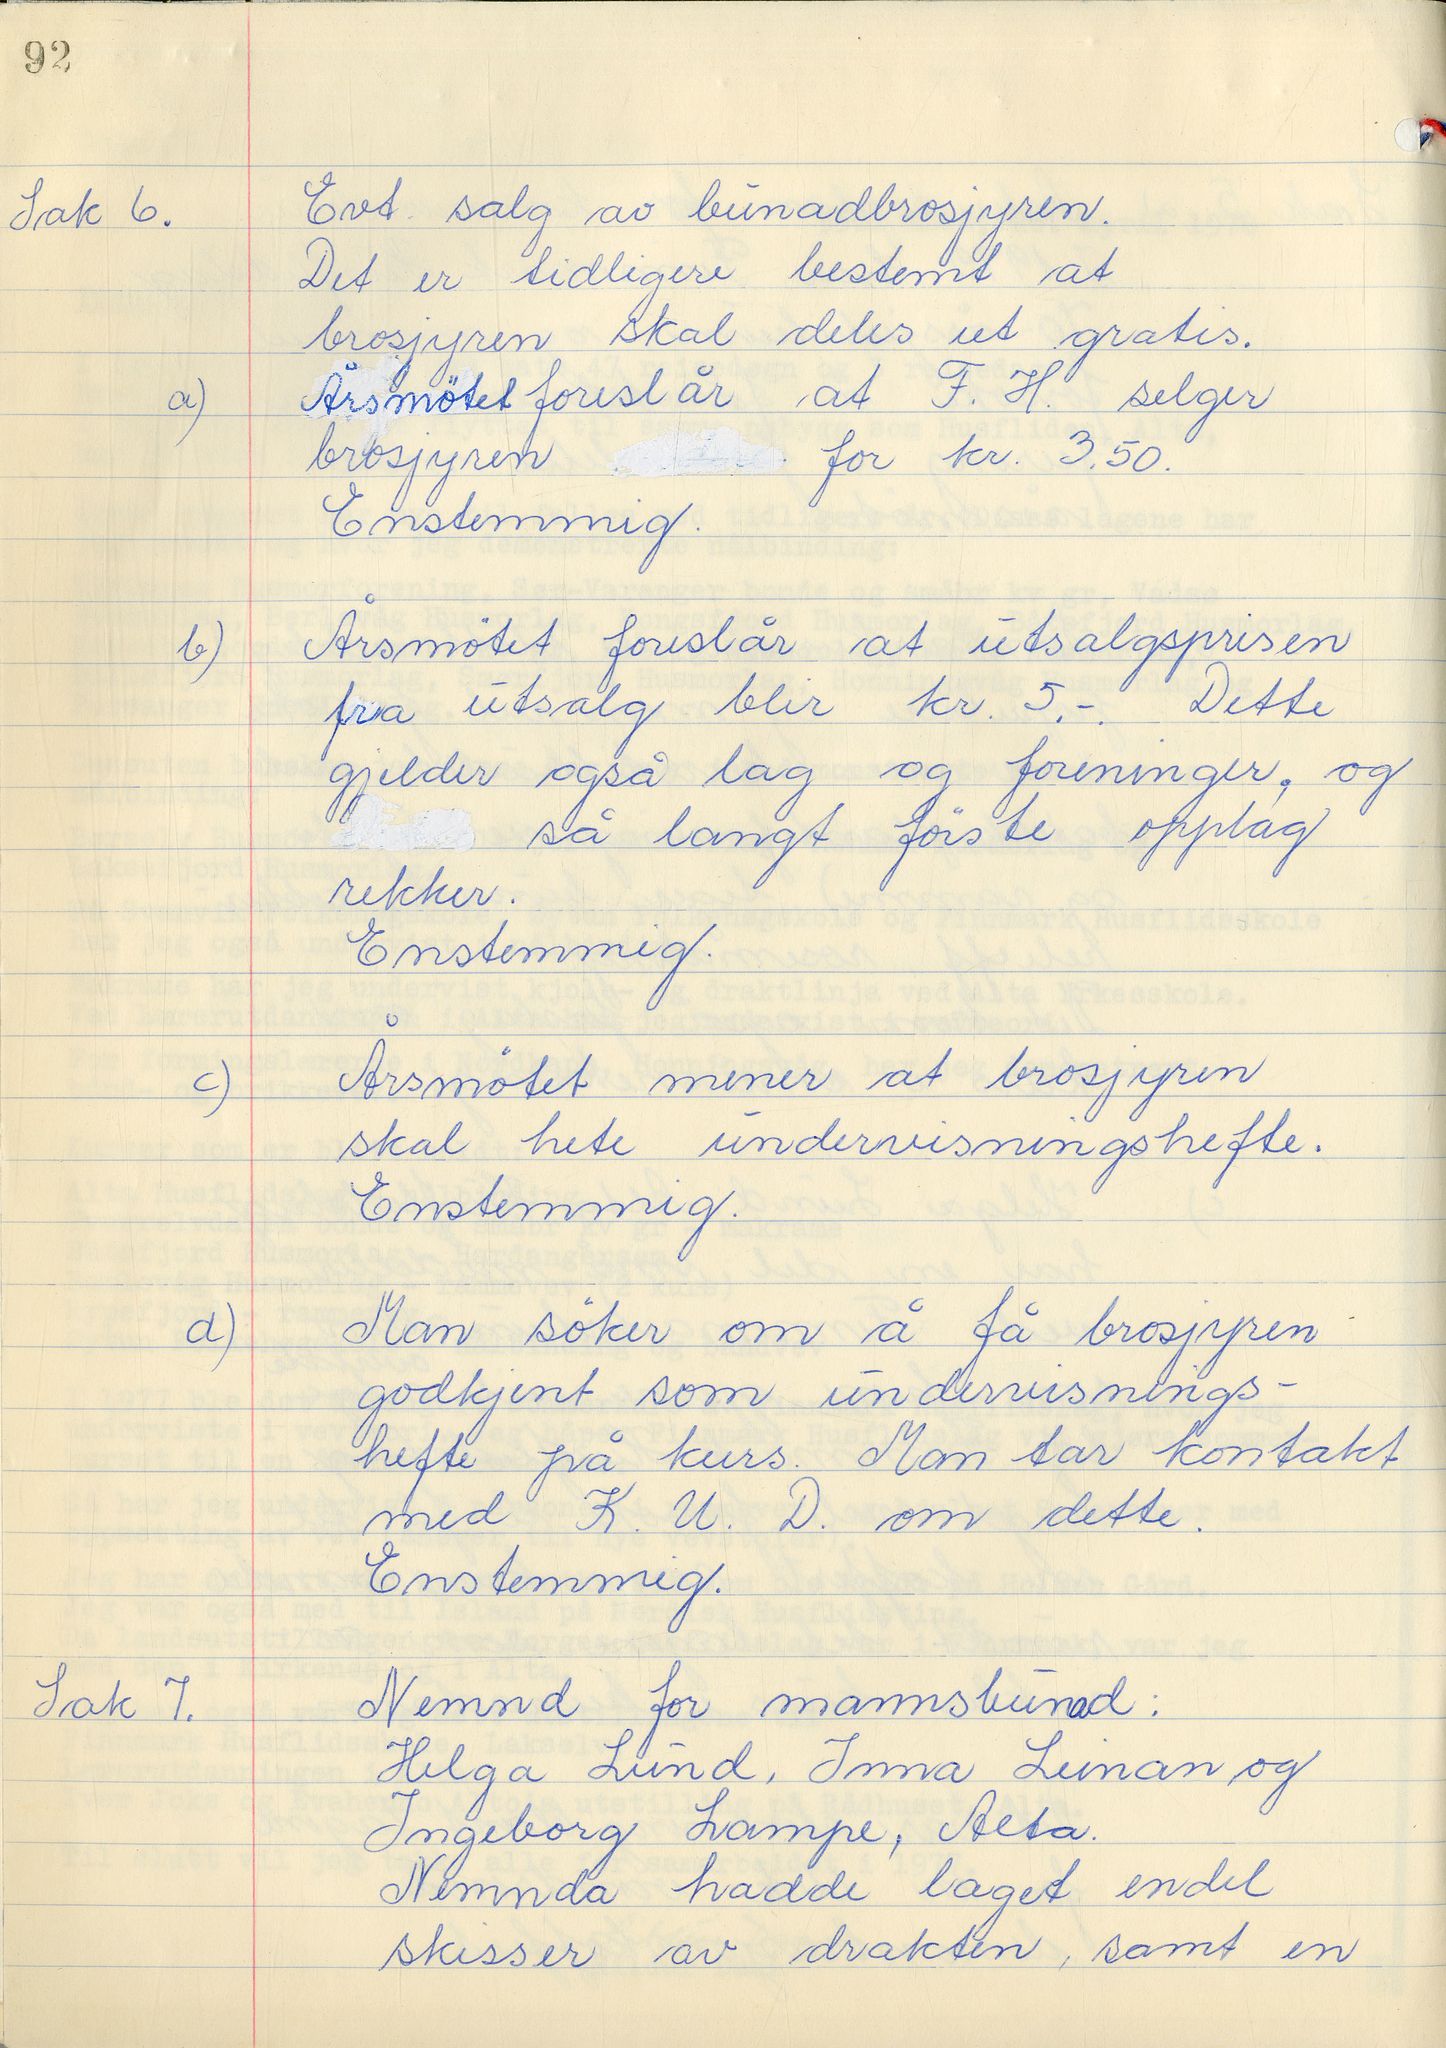 92
Sak 6. Evt. salg av bunadbrosjyren.
Det er tidligere bestemt at
brosjyren skal deles ut gratis.
a) Årsmötet foreslår at F. H. selger
brosjyren for kr. 3.50.
Enstemmig.
b) Årsmötet foreslår at utsalgsprisen
fra utsalg blir kr. 5.-. Dette
gjelder også lag og foreninger, og
så langt förste opplag
rekker.
Enstemmig.
c) Årsmötet mener at brosjyren
skal hete undervisningshefte.
Enstemmig.
d) Man söker om å få brosjyren
godkjent som undervisnings-
hefte på kurs. Man tar kontakt
med K. U. D. om dette.
Enstemmig.
Sak 7. Nemnd for mannsbunad:
Helga Lund, Inna Leinan og
Ingeborg Lampe, Alta.
Nemnda hadde laget endel
skisser av drakten, samt en